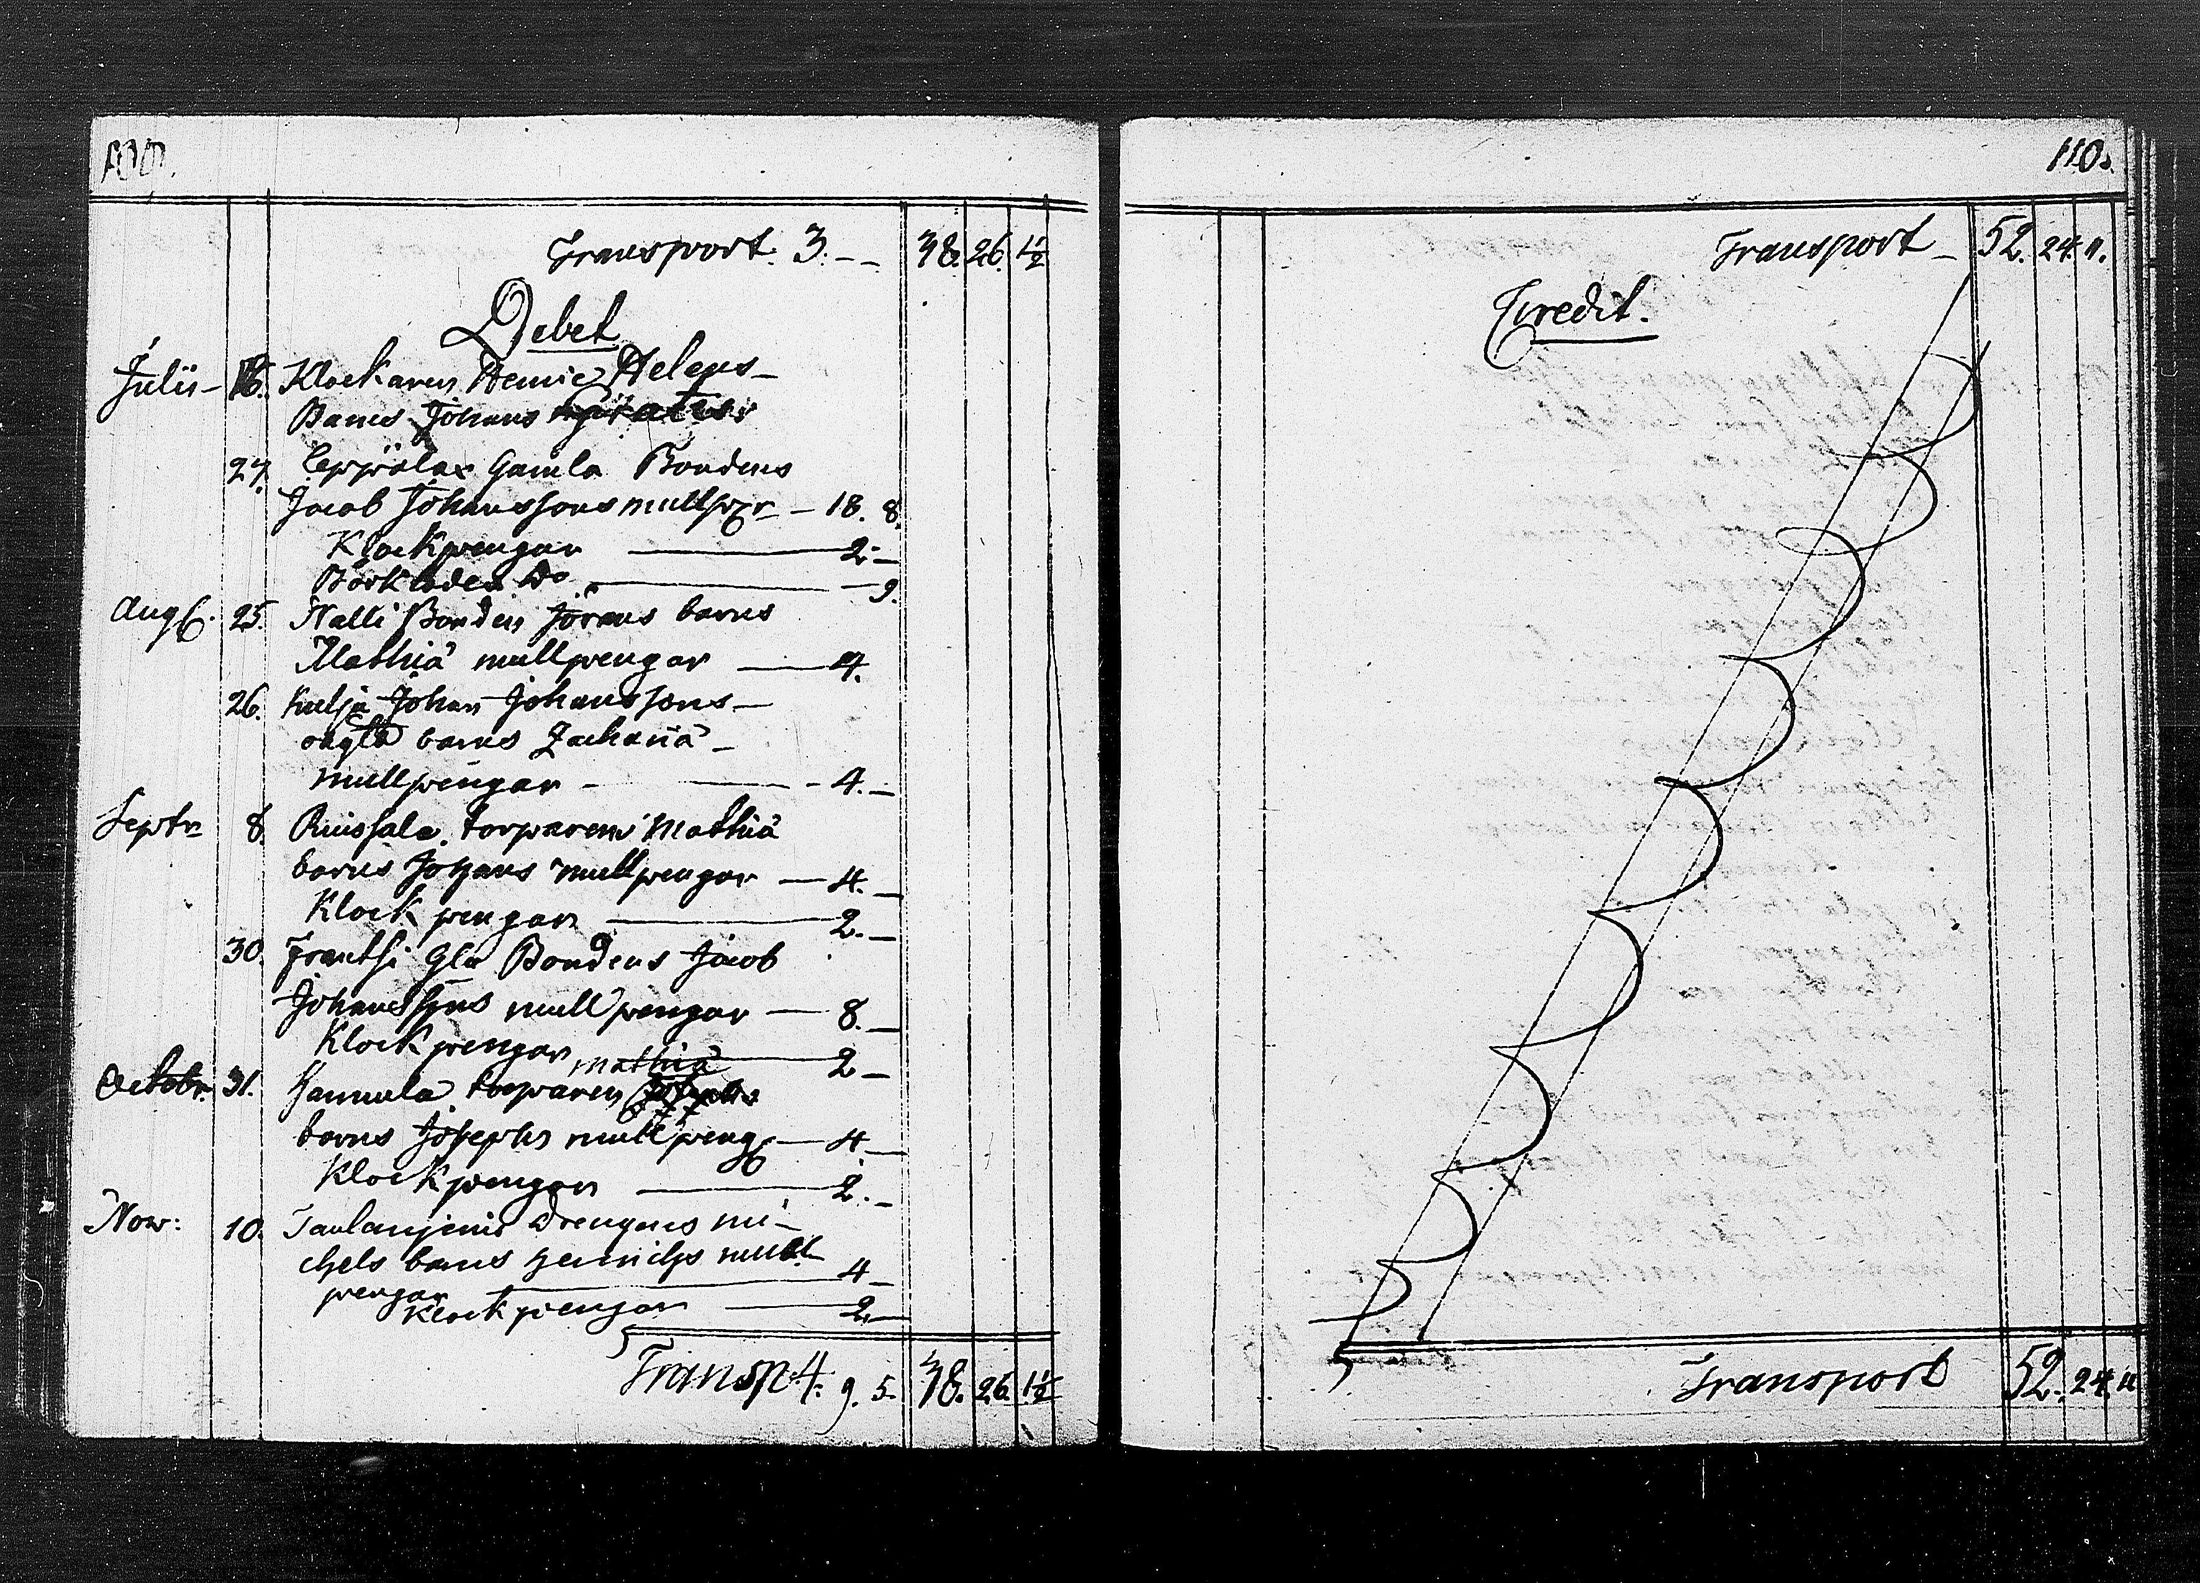 Transport. 3. – – 38. 26. 1½
Debet
Julii – 16. Klockaren Henric Helens –
Barns Johans gratis
27. Leppälax Gamla Bondens
Jacob Johanssons mullpgr – 18. 8.
Klockpengar — 2. –
Bårkläden Do — 9.
Aug. 25. Nalli Bonden Jörans barns
Mathiä mullpengar — 4.
26. Kulja Johan Johanssons –
ogta barns Zachariä –
mullpengar – — 4. –
Septr 8. Ruissala torparens Mathiä
barns Johans mullpengar — 4. –
Klockpengar — 2. –
30. Frantsi Gla Bondens Jacob
Johanssons mullpengar — 8. –
Klockpengar — 2 –
Mathiä
Octobr. 31. Hannula torparen
barns Josephs mullpeng — 4. –
Klockpengar — 2. –
Nov: 10. Drengens Mi–
chels barns Henrichs mull
pengar — 4 –
Klockpengar — 2. –
Transp. 4. 9. 5. 38. 26. 1½
110.
Transport – 52. 24. 11.
Credit.
Transport 52. 24. 11